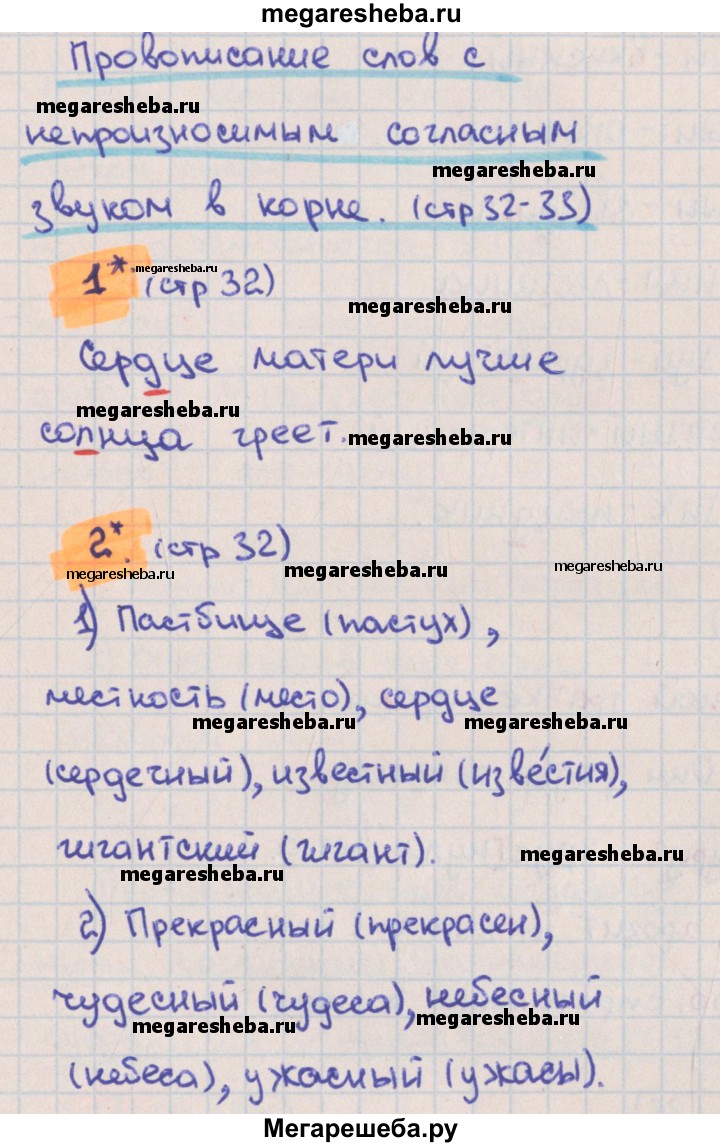 megaresheba.ru
Провописание слов с
megaresheba.ru
непроизносимым согласным
megaresheba.ru
звуком в корне. (стр 32-33)
1* (стр 32)
megaresheba.ru
megaresheba.ru
Сердце матери лучше
megaresheba.ru
солнца греет.
megaresheba.ru
2*. (стр 32)
megaresheba.ru
megaresheba.ru
megaresheba.ru
1) Пастбище (пастух),
местность (место), сердце
megaresheba.ru
megaresheba.ru
(сердечный), известный (изве́стия),
гигантский (гигант).
megaresheba.ru
megaresheba.ru
2) Прекрасный (прекрасен),
чудесный (чудеса), небесный
megaresheba.ru
megaresheba.ru
(небеса), ужасный (ужасы).
Мегарешеба.ру